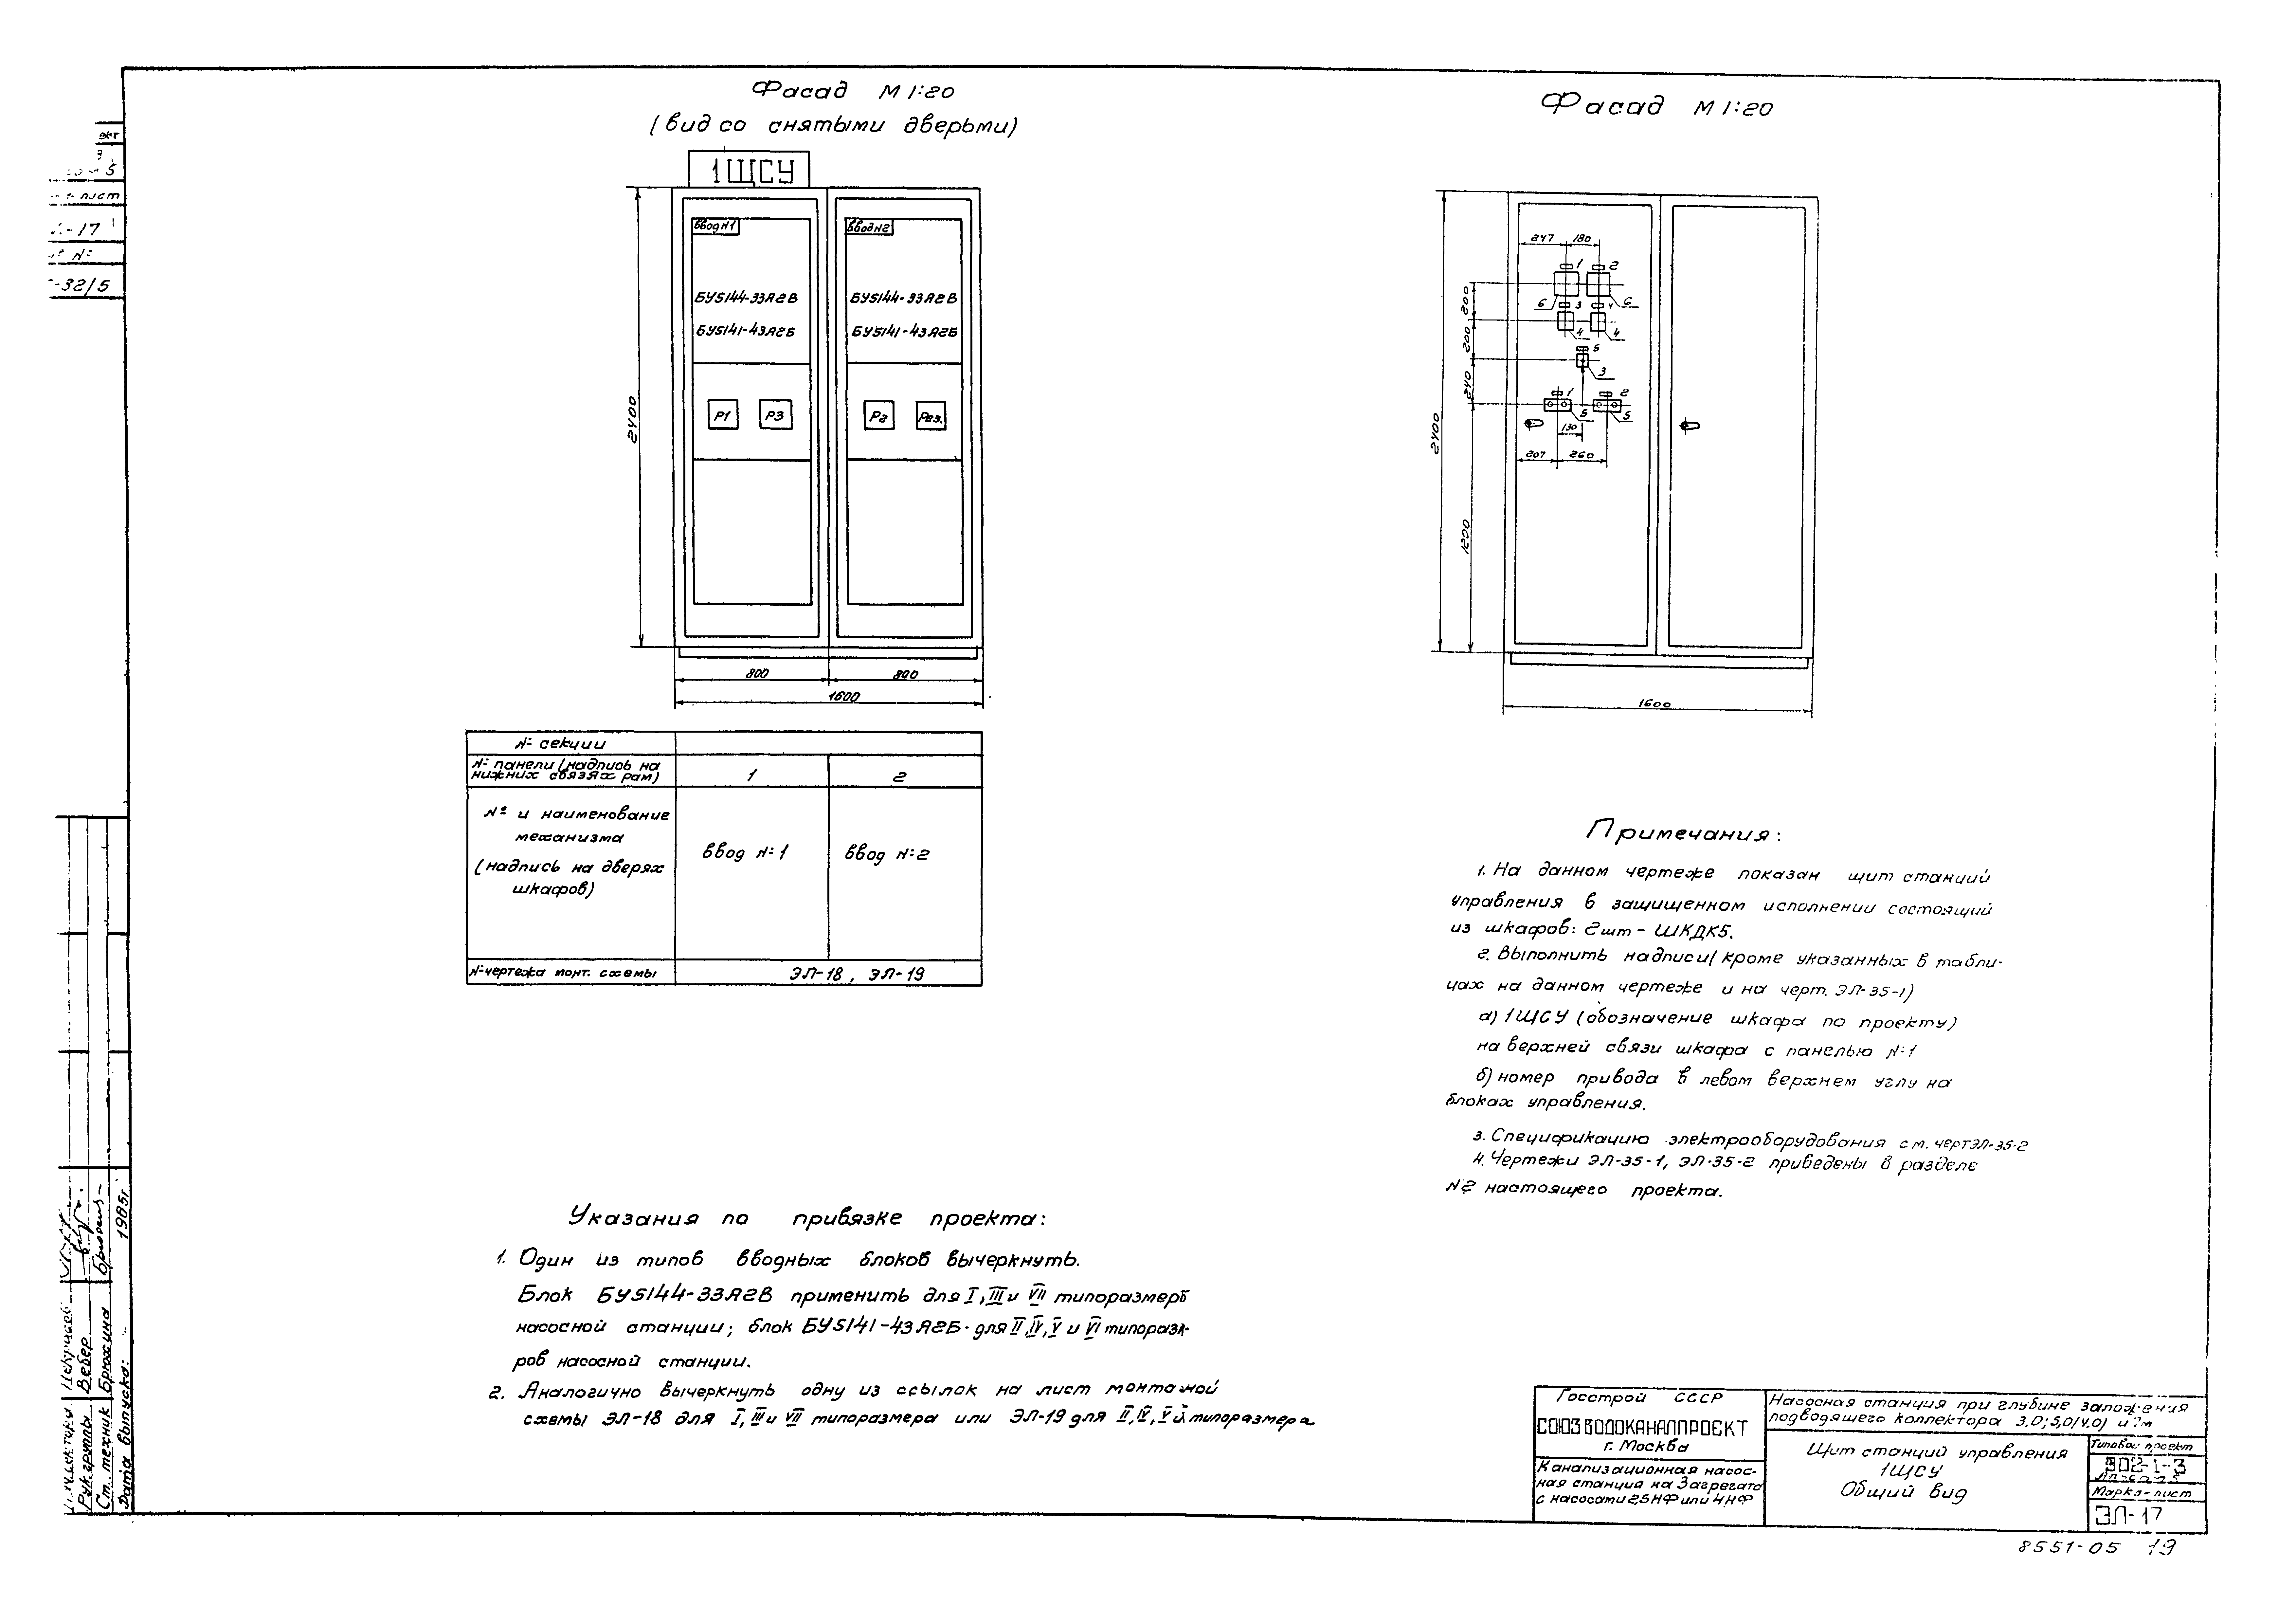 Фасад М 1:20
(вид со снятыми дверьми)
1ЩСУ
Ввод N1
Ввод N2
БУ5144-33А2В
БУ5144-33А2В
БУ5141-43А2Б
БУ5141-43А2Б
Р1
Р3
Р2
Рез.
2400
800
800
1600
Фасад М 1:20
247
180
1
2
6
6
3
4
4
4
5
3
1
2
5
5
130
207
260
200
200
240
1200
2400
1600
№ секции
№ панели (надпись на
нижних связях рам)
1
2
№ и наименование
механизма
(надпись на дверях
шкафов)
Ввод №1
Ввод №2
№ чертежа монт. схемы
ЭЛ-18, ЭЛ-19
Примечания:
1. На данном чертеже показан щит станций
управления в защищенном исполнении состоящий
из шкафов: 2шт - ШКДК5.
2. Выполнить надписи (кроме указанных в табли-
цах на данном чертеже и на черт. ЭЛ-35-1)
а) 1ЩСУ (обозначение шкафа по проекту)
на верхней связи шкафа с панелью №1
б) номер привода в левом верхнем углу на
блоках управления.
3. Спецификацию электрооборудования см. черт ЭЛ-35-2
4. Чертежи ЭЛ-35-1, ЭЛ-35-2 приведены в разделе
№2 настоящего проекта.
Указания по привязке проекта:
1. Один из типов вводных блоков вычеркнуть.
Блок БУ5144-33А2В применить для I, III и VII типоразмеров
насосной станции; блок БУ5141-43А2Б для II, IV, V и VI типоразме-
ров насосной станции.
2. Аналогично вычеркнуть одну из ссылок на лист монтажной
схемы ЭЛ-18 для I, III и VII типоразмера или ЭЛ-19 для II, IV, V и типоразмера
Госстрой СССР
СОЮЗВОДОКАНАЛПРОЕКТ
г. Москва
Канализационная насос-
ная станция на 3 агрегата
с насосами 2,5НФ или 4НФ
Насосная станция при глубине заложения
подводящего коллектора 3,0; 5,0(4,0) и 7м
Щит станций управления
1ЩСУ
Общий вид
Типовой проект
902-1-3
Альбом 5
Марка-лист
ЭЛ-17
8551-05 19
Рук. группы Вебер
Ст. техник Брюхина
Дата выпуска: 1985г